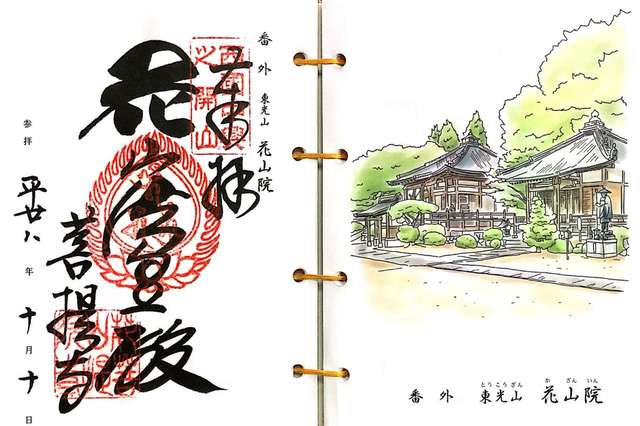 番外 東光山 花山院
奉拝
花山法皇殿
菩提寺
参拝 平廿八年十月十日
とうこうざん か ざん いん
番外 東光山 花山院